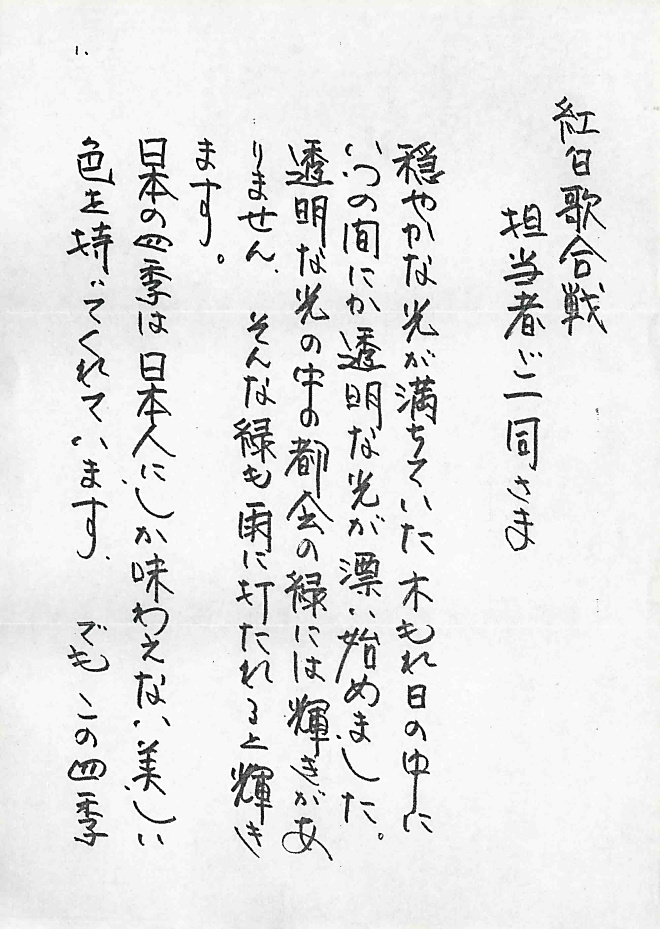 1.
紅白歌合戦
担当者ご一同さま
穏やかな光が満ちていた木もれ日の中に
いつの間にか透明な光が漂い始めました。
透明な光の中の都会の緑には輝きがあ
りません、そんな緑も雨に打たれると輝き
ます。
日本の四季は日本人にしか味わえない美しい
色を持ってくれています、でもこの四季